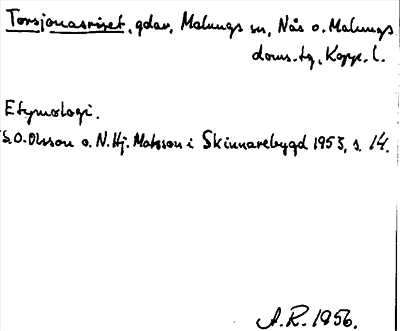 Torsjonasriset, gdar, Malungs sn, Nås o. Malungs
doms. tg, Kopp. l.
Etymologi.
S.O. Olsson o. N. Hj. Matsson i Skinnarebygd 1953, s. 14.
A. R. 1956.